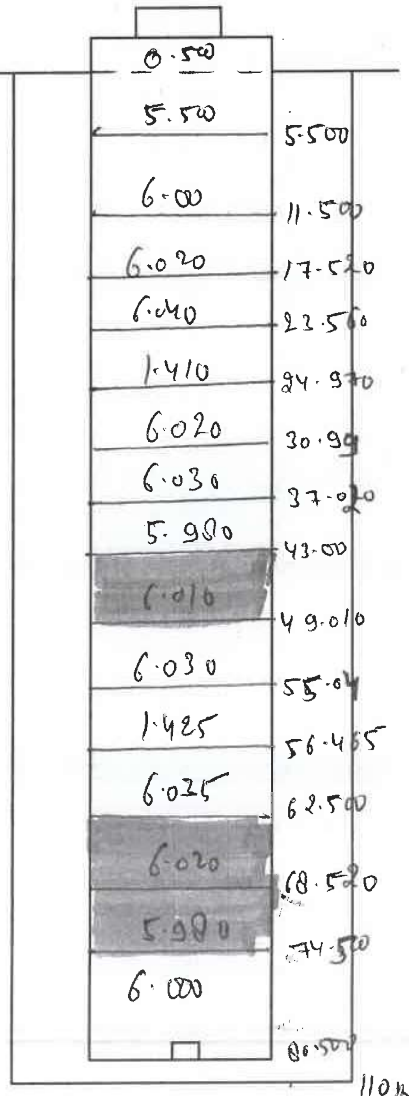 0.500
5.500
5.500
6.00
11.500
6.020
17.520
6.040
23.560
1.410
24.970
6.020
30.99
6.030
37.020
5.980
43.00
6.010
49.010
6.030
55.04
1.425
56.465
6.035
62.500
6.020
68.520
5.980
74.500
6.000
80.500